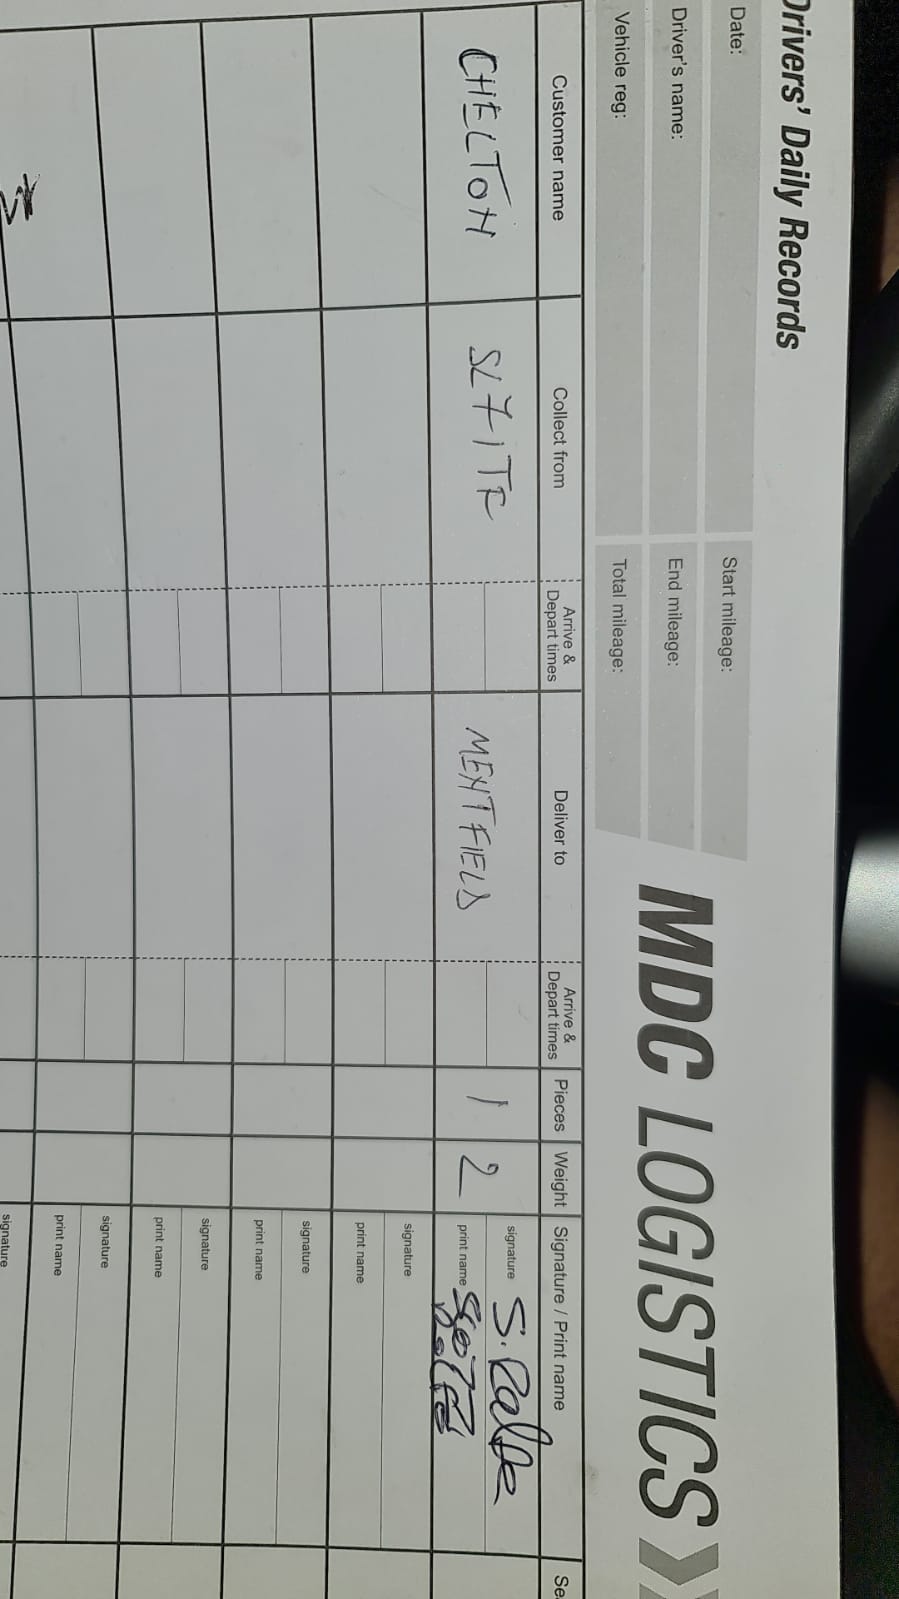 Drivers' Daily Records
Date:
Start mileage:
Driver's name:
End mileage:
Vehicle reg:
Total mileage:
MDC LOGISTICS
Customer name Collect from Arrive & Depart times Deliver to Arrive & Depart times Pieces Weight Signature / Print name Se
CHELTON SL7 1TR MENTFIELD 1 2
signature S.
print name
signature
print name
signature
print name
signature
print name
signature
print name
signature